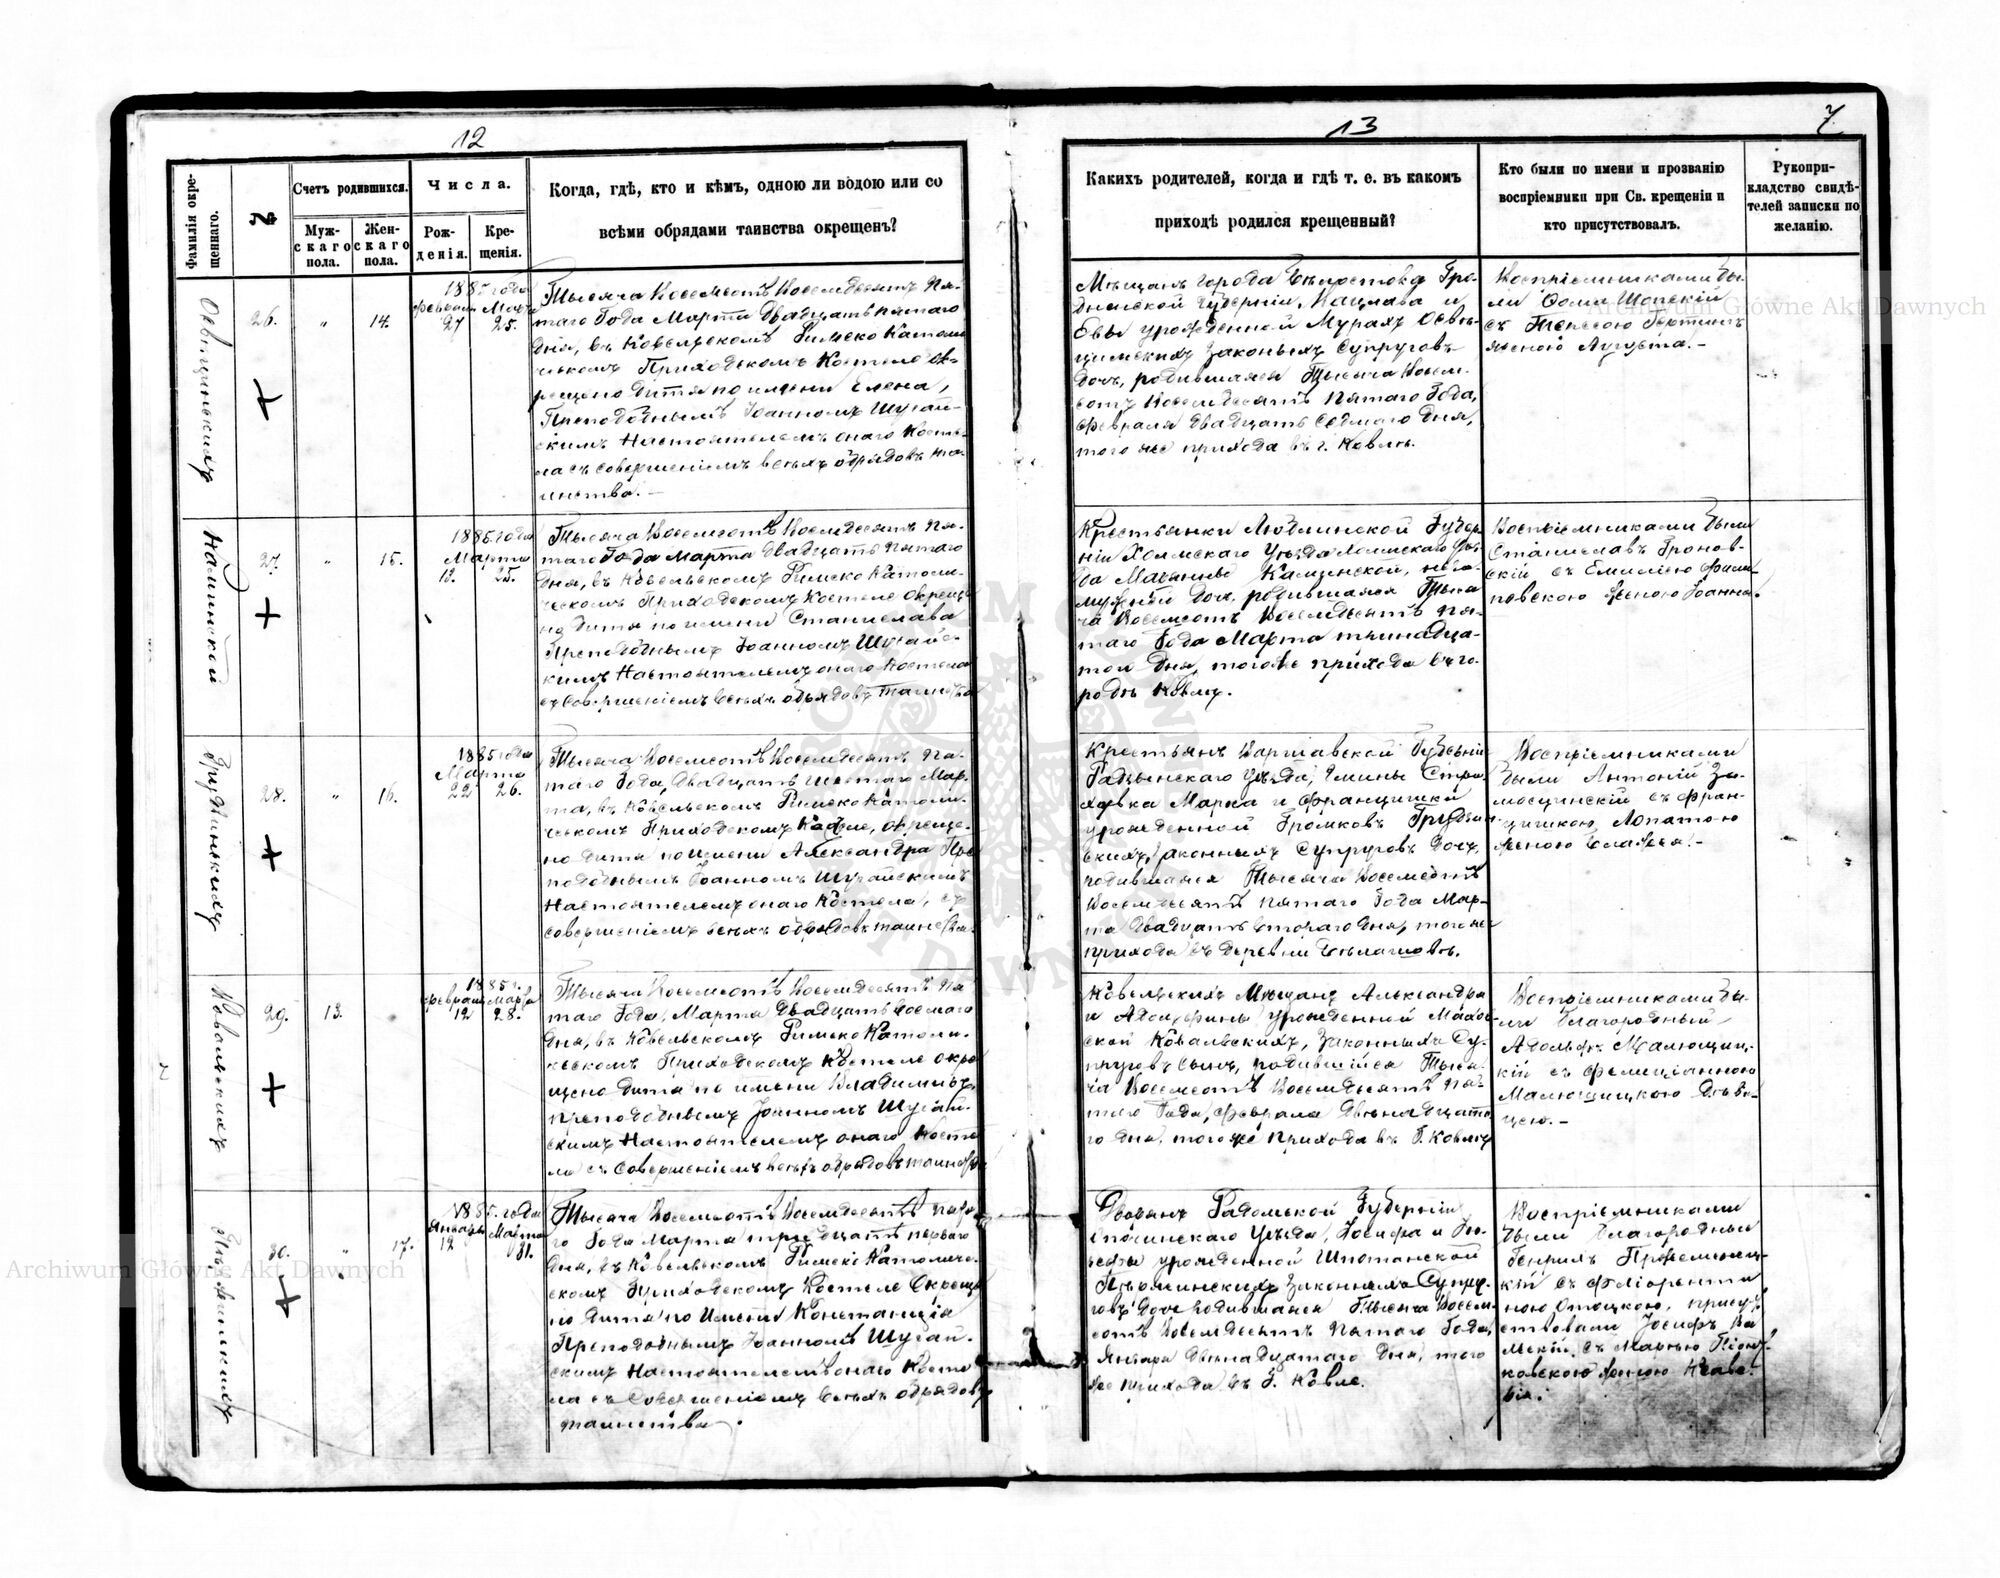 12
Фамилія окре-
щеннаго.
№
Счетъ родившихся.
Муж-
скаго
пола.
Жен-
скаго
пола.
Числа.
Рож-
денія.
Кре-
щенія.
Когда, гдѣ, кто и кѣмъ, одною ли водою или со
всѣми обрядами таинства окрещенъ?
26.
"
14.
1885 года
Февраля Марта
27 25.
Тысяча Восемсотъ Восемдесятъ Пя-
таго Года Марта Двадцать пятаго
дня, въ Ковельскомъ Римско Катол
ческомъ Приходскомъ Костеле ок-
рещено дитя по имени Елена,
Преподобнымъ Іоанномъ Шугай-
скимъ Настоятелемъ онаго Косте-
ла съ совершеніемъ всѣхъ обрядовъ та-
инства. —
Каминской
27.
"
15.
1885 года
Марта
13. 25.
Тысяча Восемсотъ Восемдесятъ Пя-
таго Года Марта Двадцать Пятаго
дня, въ Ковельскомъ Римско Католи-
ческомъ Приходскомъ Костеле окреще
но дитя по имени Станислава
Преподобнымъ Іоанномъ Шугайс-
кимъ Настоятелемъ онаго Костела
съ совершеніемъ всѣхъ обрядовъ таинства
28.
"
16.
1885 года
Марта
22 26.
Тысяча Восемсотъ Восемдесятъ Пя-
таго Года, Двадцать Шестаго Мар-
та, въ Ковельскомъ Римско Католи-
ческомъ Приходскомъ Костеле, окреще-
но дитя по имени Александра Пре
подобнымъ Іоанномъ Шугайскимъ
Настоятелемъ онаго Костела, съ
совершеніемъ всѣхъ обрядовъ таинства.
Ковальскихъ
29.
13.
1885 г.
Февраля Марта
12 28.
Тысяча Восемсотъ Восемдесятъ Пя
таго Года, Марта Двадцать Восмаго
дня, въ Ковельскомъ Римско Католи-
ческомъ Приходскомъ Костеле окре
щено дитя по имени Владимиръ
преподобнымъ Іоанномъ Шугай-
скимъ Настоятелемъ онаго Косте
ла съ совершеніемъ всѣхъ обрядовъ таинства
30.
"
17.
1885. года
Января Марта
12 31.
Тысяча Восемсотъ Восемдесятъ Пята
го Года Марта тридцать перваго
дня, въ Ковельскомъ Римско Католиче-
скомъ Приходскомъ Костеле Окреще
но дитя по Имени Констанція
Преподобнымъ Іоанномъ Шугай-
скимъ Настоятелемъ онаго Косте
ла съ Совершеніемъ всѣхъ обрядовъ
таинства.
13
7
Какихъ родителей, когда и гдѣ т. е. въ какомъ
приходѣ родился крещенный?
Кто были по имени и прозванію
воспріемники при Св. крещеніи и
кто присутствовалъ.
Рукопри-
кладство свидѣ-
телей записки по
желанію.
Мѣщанъ города Бѣлостока Гро-
дненской Губерніи, Вацлава и
Евы урожденной Мурахъ Освѣ-
цимскихъ законныхъ Супруговъ
дочъ, родившаяся Тысяча Восем-
сотъ Восемдесятъ Пятаго Года,
Февраля Двадцать Седмаго Дня,
того же прихода въ г. Ковлѣ.
Воспріемниками бы-
ли
съ Терезою
женою Августа. —
Крестьянки Люблинской Губер
ніи Холмскаго Уѣзда
Маріанны Каминской, неза-
мужней дочъ, родившаяся Тыся
ча Восемсотъ Восемдесятъ Пя-
таго Года Марта тринадца-
таго Дня, того же прихода въ го-
родѣ Ковлѣ.
Воспріемниками были
Станиславъ Гронов-
скій съ Емиліею Фили-
повскою женою Іоанна.
Крестьянъ Варшавской Губерніи
Радзынскаго уѣзда, Гмины Стра-
ховка Марка и Францишки
урожденной Громковъ
законныхъ Супруговъ дочъ,
родившаяся Тысяча Восемсотъ
Восемдесятъ пятаго Года Мар-
та Двадцать втораго Дня, того же
прихода въ деревни
Воспріемниками
были Антоній За-
мосцинскій съ Фран-
цишкою Лопатою
женою —
Ковельскихъ Мѣщанъ Александра
и Адольфины урожденной
Ковальскихъ, законныхъ Су-
пруговъ сынъ, родившійся Тыся-
ча Восемсотъ Восемдесятъ Пя-
таго Года, Февраля Двенадцата
го дня, того же прихода въ Г. Ковлѣ
Воспріемниками бы-
ли Благородный
Адольфъ Малющиц-
кій съ Фелиціанною
Малющицкою Дѣви-
цею. —
Дворянъ Радомской Губерніи
Уѣзда, Іосифа и Іо-
зефы урожденной
законныхъ Супру-
говъ дочъ родившаяся Тысяча Восем-
сотъ Восемдесятъ Пятаго Года,
Января Двѣнадцатаго Дня, того
же прихода въ Г. Ковлѣ.
Воспріемниками
были Благородный
Генрихъ
кій съ Флоренти
ною присут
ствовали Іосифъ
съ Маріею
женою Ксаве-
рія.
Archiwum Główne Akt Dawnych
Archiwum Główne Akt Dawnych